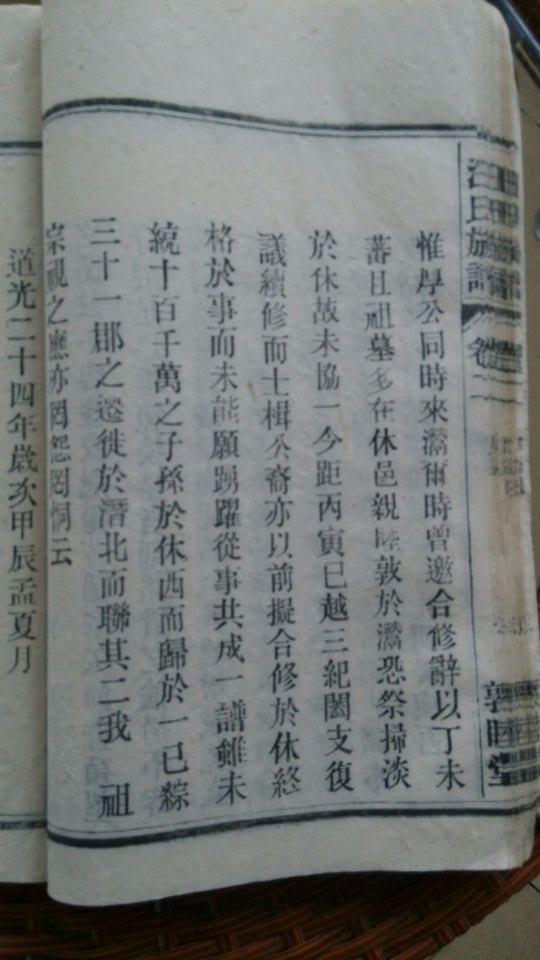 汪氏族譜
卷二
敦睦堂
惟厚公同時來灊爾時曾邀合修辭以丁未
蕃且祖墓多在休邑親睦敦於灊恐祭掃淡
於休故未協一今距丙寅已越三紀闔支復
議續修而士楫公裔亦以前擬合修於休終
格於事而未能願踴躍從事共成一譜雖未
統十百千萬之子孫於休西而歸於一已綜
三十一郡之遷徙於潛北而聯其二我 祖
宗視之應亦罔怨罔恫云
道光二十四年歲次甲辰孟夏月